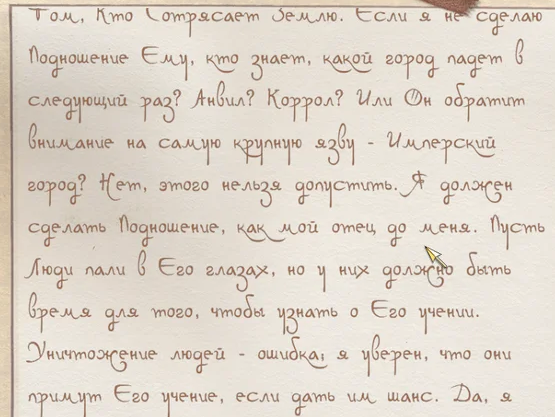 Том, Кто Сотрясает Землю. Если я не сделаю
Подношение Ему, кто знает, какой город падет в
следующий раз? Анвил? Коррол? Или Он обратит
внимание на самую крупную язву - Имперский
город? Нет, этого нельзя допустить. Я должен
сделать Подношение, как мой отец до меня. Пусть
Люди пали в Его глазах, но у них должно быть
время для того, чтобы узнать о Его учении.
Уничтожение людей - ошибка; я уверен, что они
примут Его учение, если дать им шанс. Да, я